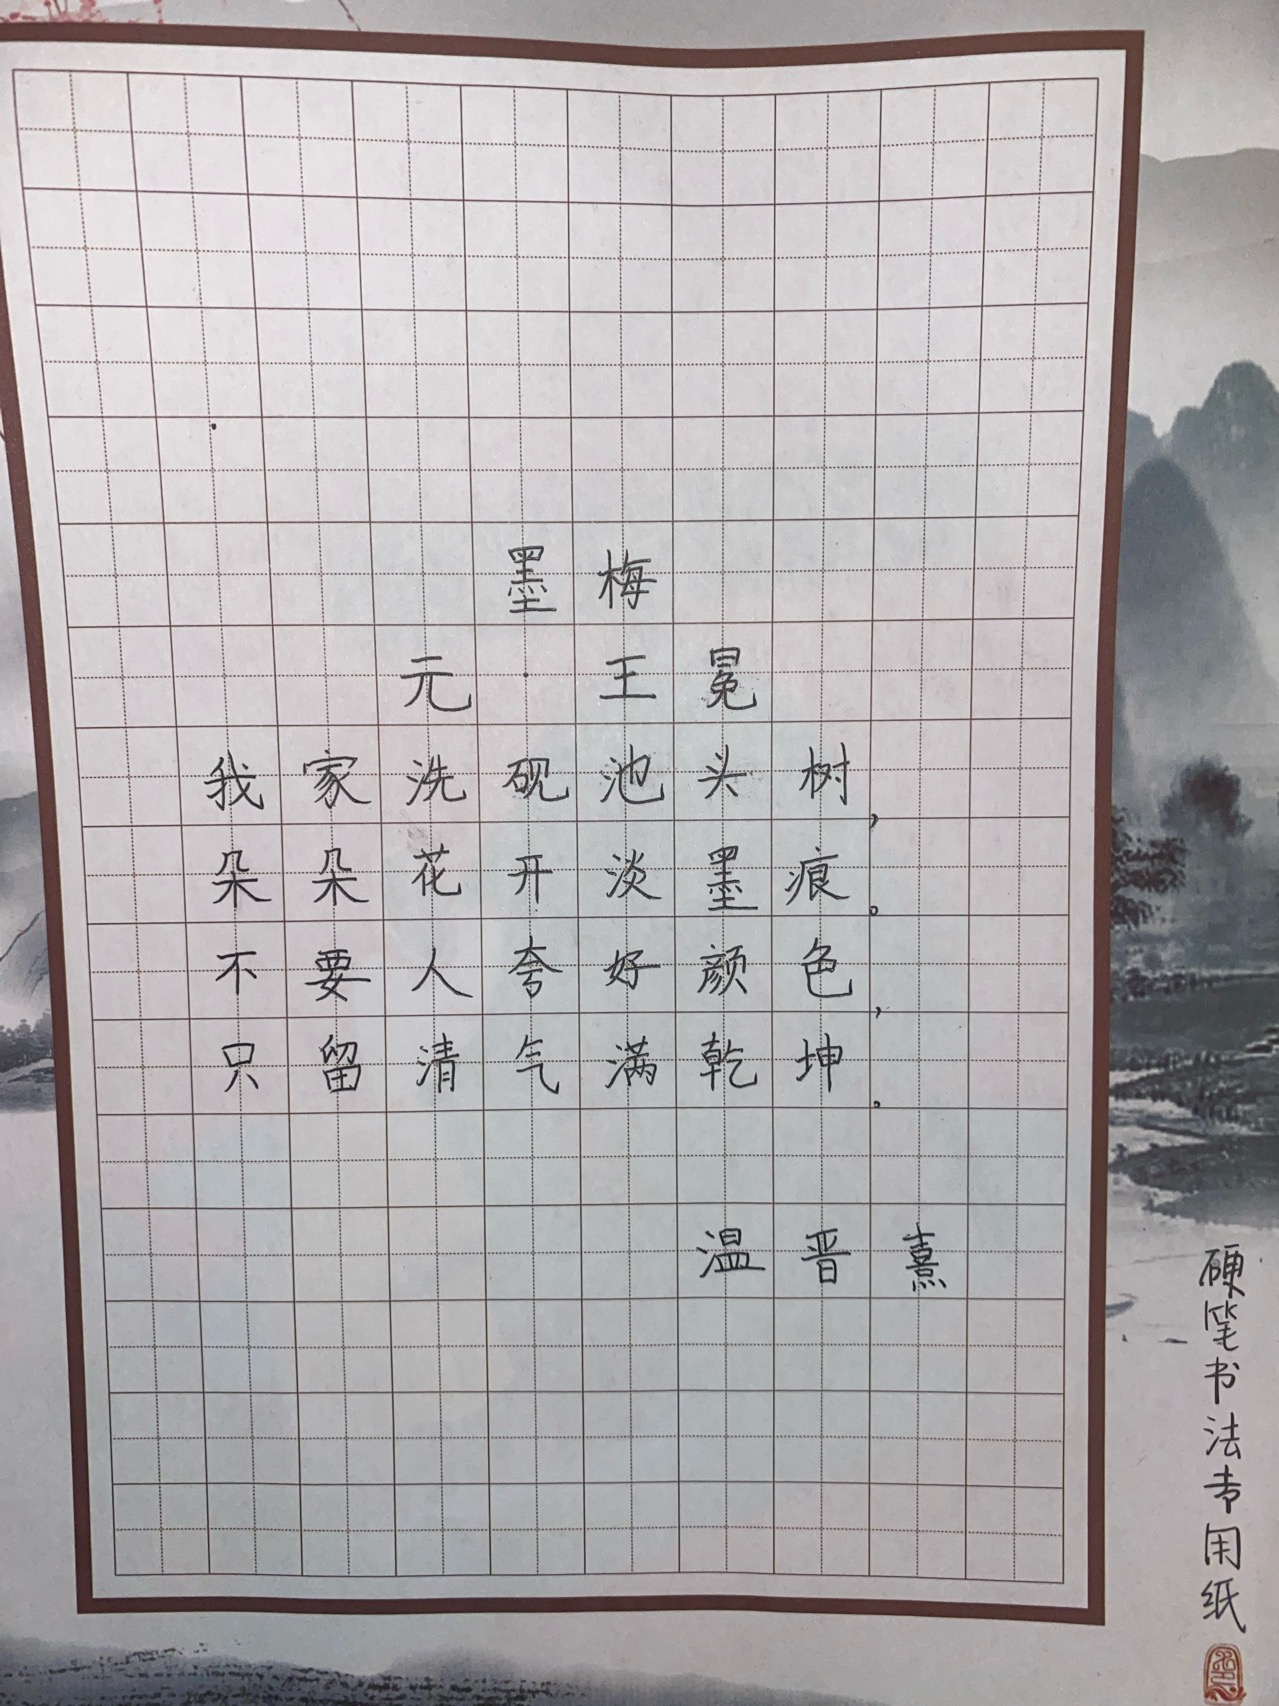 墨梅
元·王冕
我家洗砚池头树，
朵朵花开淡墨痕。
不要人夸好颜色，
只留清气满乾坤。
温晋熹
硬笔书法专用纸